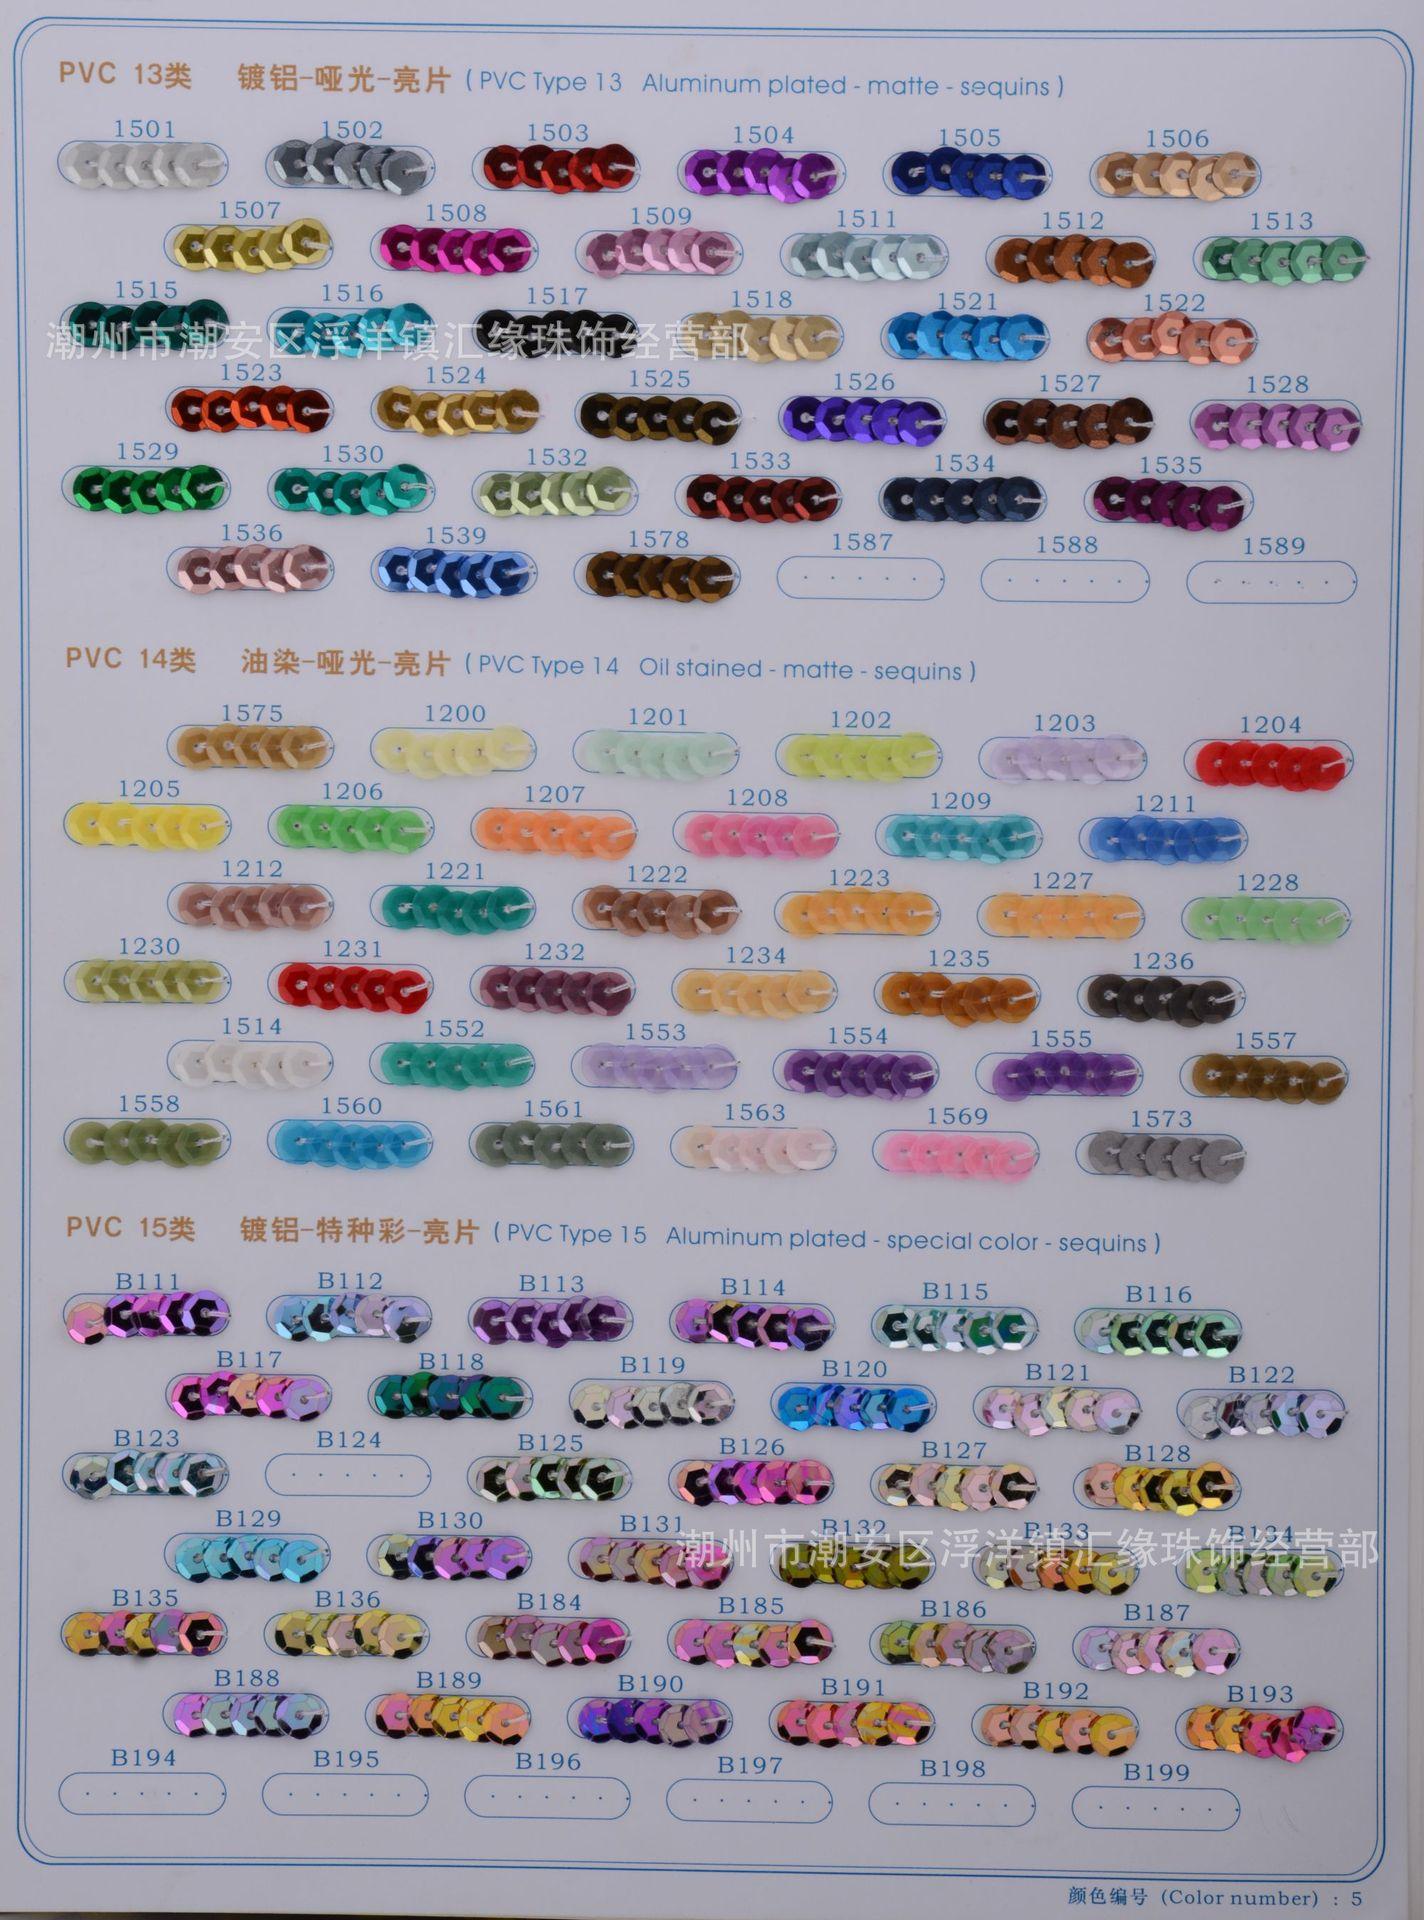 PVC 13类 镀铝-哑光-亮片 (PVC Type 13 Aluminum plated - matte - sequins)
1501 1502 1503 1504 1505 1506
1507 1508 1509 1511 1512 1513
1515 1516 1517 1518 1521 1522
潮州市潮安区浮洋镇汇缘珠饰经营部
1523 1524 1525 1526 1527 1528
1529 1530 1532 1533 1534 1535
1536 1539 1578 1587 1588 1589
PVC 14类 油染-哑光-亮片 (PVC Type 14 Oil stained - matte - sequins)
1575 1200 1201 1202 1203 1204
1205 1206 1207 1208 1209 1211
1212 1221 1222 1223 1227 1228
1230 1231 1232 1234 1235 1236
1514 1552 1553 1554 1555 1557
1558 1560 1561 1563 1569 1573
PVC 15类 镀铝-特种彩-亮片 (PVC Type 15 Aluminum plated - special color - sequins)
B111 B112 B113 B114 B115 B116
B117 B118 B119 B120 B121 B122
B123 B124 B125 B126 B127 B128
B129 B130 B131 B132 B133 B134
潮州市潮安区浮洋镇汇缘珠饰经营部
B135 B136 B184 B185 B186 B187
B188 B189 B190 B191 B192 B193
B194 B195 B196 B197 B198 B199
颜色编号 (Color number) : 5